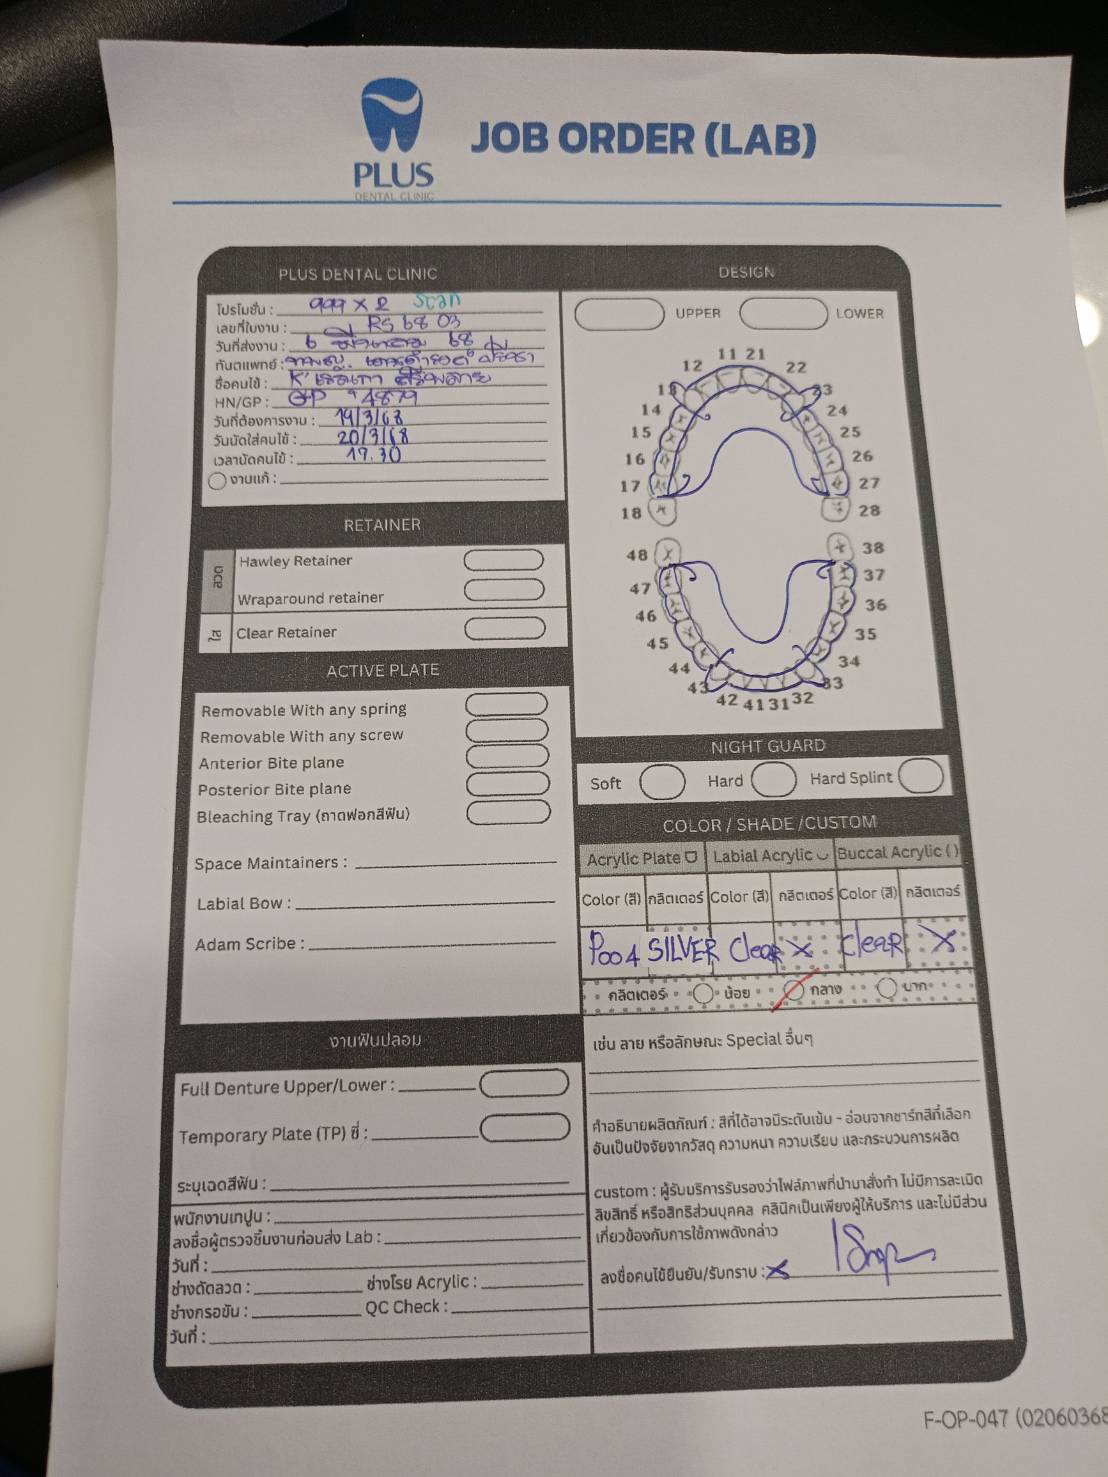 PLUS
DENTAL CLINIC
JOB ORDER (LAB)
PLUS DENTAL CLINIC
โปรโมชั่น : 999 x 2 Scan
เลขที่ใบงาน : RS 68 03
วันที่ส่งงาน : 6 68
ทันตแพทย์ :
ชื่อคนไข้ : K'
HN/GP : GP 4879
วันที่ต้องการงาน : 19/3/68
วันนัดใส่คนไข้ : 20/3/68
เวลานัดคนไข้ : 17.30
งานแก้ :
RETAINER
ลวด
Hawley Retainer
Wraparound retainer
ใส
Clear Retainer
ACTIVE PLATE
Removable With any spring
Removable With any screw
Anterior Bite plane
Posterior Bite plane
Bleaching Tray (ถาดฟอกสีฟัน)
Space Maintainers :
Labial Bow :
Adam Scribe :
งานฟันปลอม
Full Denture Upper/Lower :
Temporary Plate (TP) ซี่ :
ระบุเฉดสีฟัน :
พนักงานเทปูน :
ลงชื่อผู้ตรวจชิ้นงานก่อนส่ง Lab :
วันที่ :
ช่างดัดลวด : ช่างโรย Acrylic :
ช่างกรอขัน : QC Check :
วันที่ :
DESIGN
UPPER LOWER
11 21
12 22
13 23
14 24
15 25
16 26
17 27
18 28
48 38
47 37
46 36
45 35
44 34
43 33
42 41 31 32
NIGHT GUARD
Soft Hard Hard Splint
COLOR / SHADE /CUSTOM
Acrylic Plate Labial Acrylic Buccal Acrylic ( )
Color (สี) กลิตเตอร์ Color (สี) กลิตเตอร์ Color (สี) กลิตเตอร์
P004 SILVER Clear X clear X
กลิตเตอร์ น้อย กลาง มาก
เช่น ลาย หรือลักษณะ Special อื่นๆ
คำอธิบายผลิตภัณฑ์ : สีที่ได้อาจมีระดับเข้ม - อ่อนจากชาร์ทสีที่เลือก
อันเป็นปัจจัยจากวัสดุ ความหนา ความเรียบ และกระบวนการผลิต
custom : ผู้รับบริการรับรองว่าไฟล์ภาพที่นำมาสั่งทำ ไม่มีการละเมิด
ลิขสิทธิ์ หรือสิทธิส่วนบุคคล คลินิกเป็นเพียงผู้ให้บริการ และไม่มีส่วน
เกี่ยวข้องกับการใช้ภาพดังกล่าว
ลงชื่อคนไข้ยืนยัน/รับทราบ : X
F-OP-047 (02060368